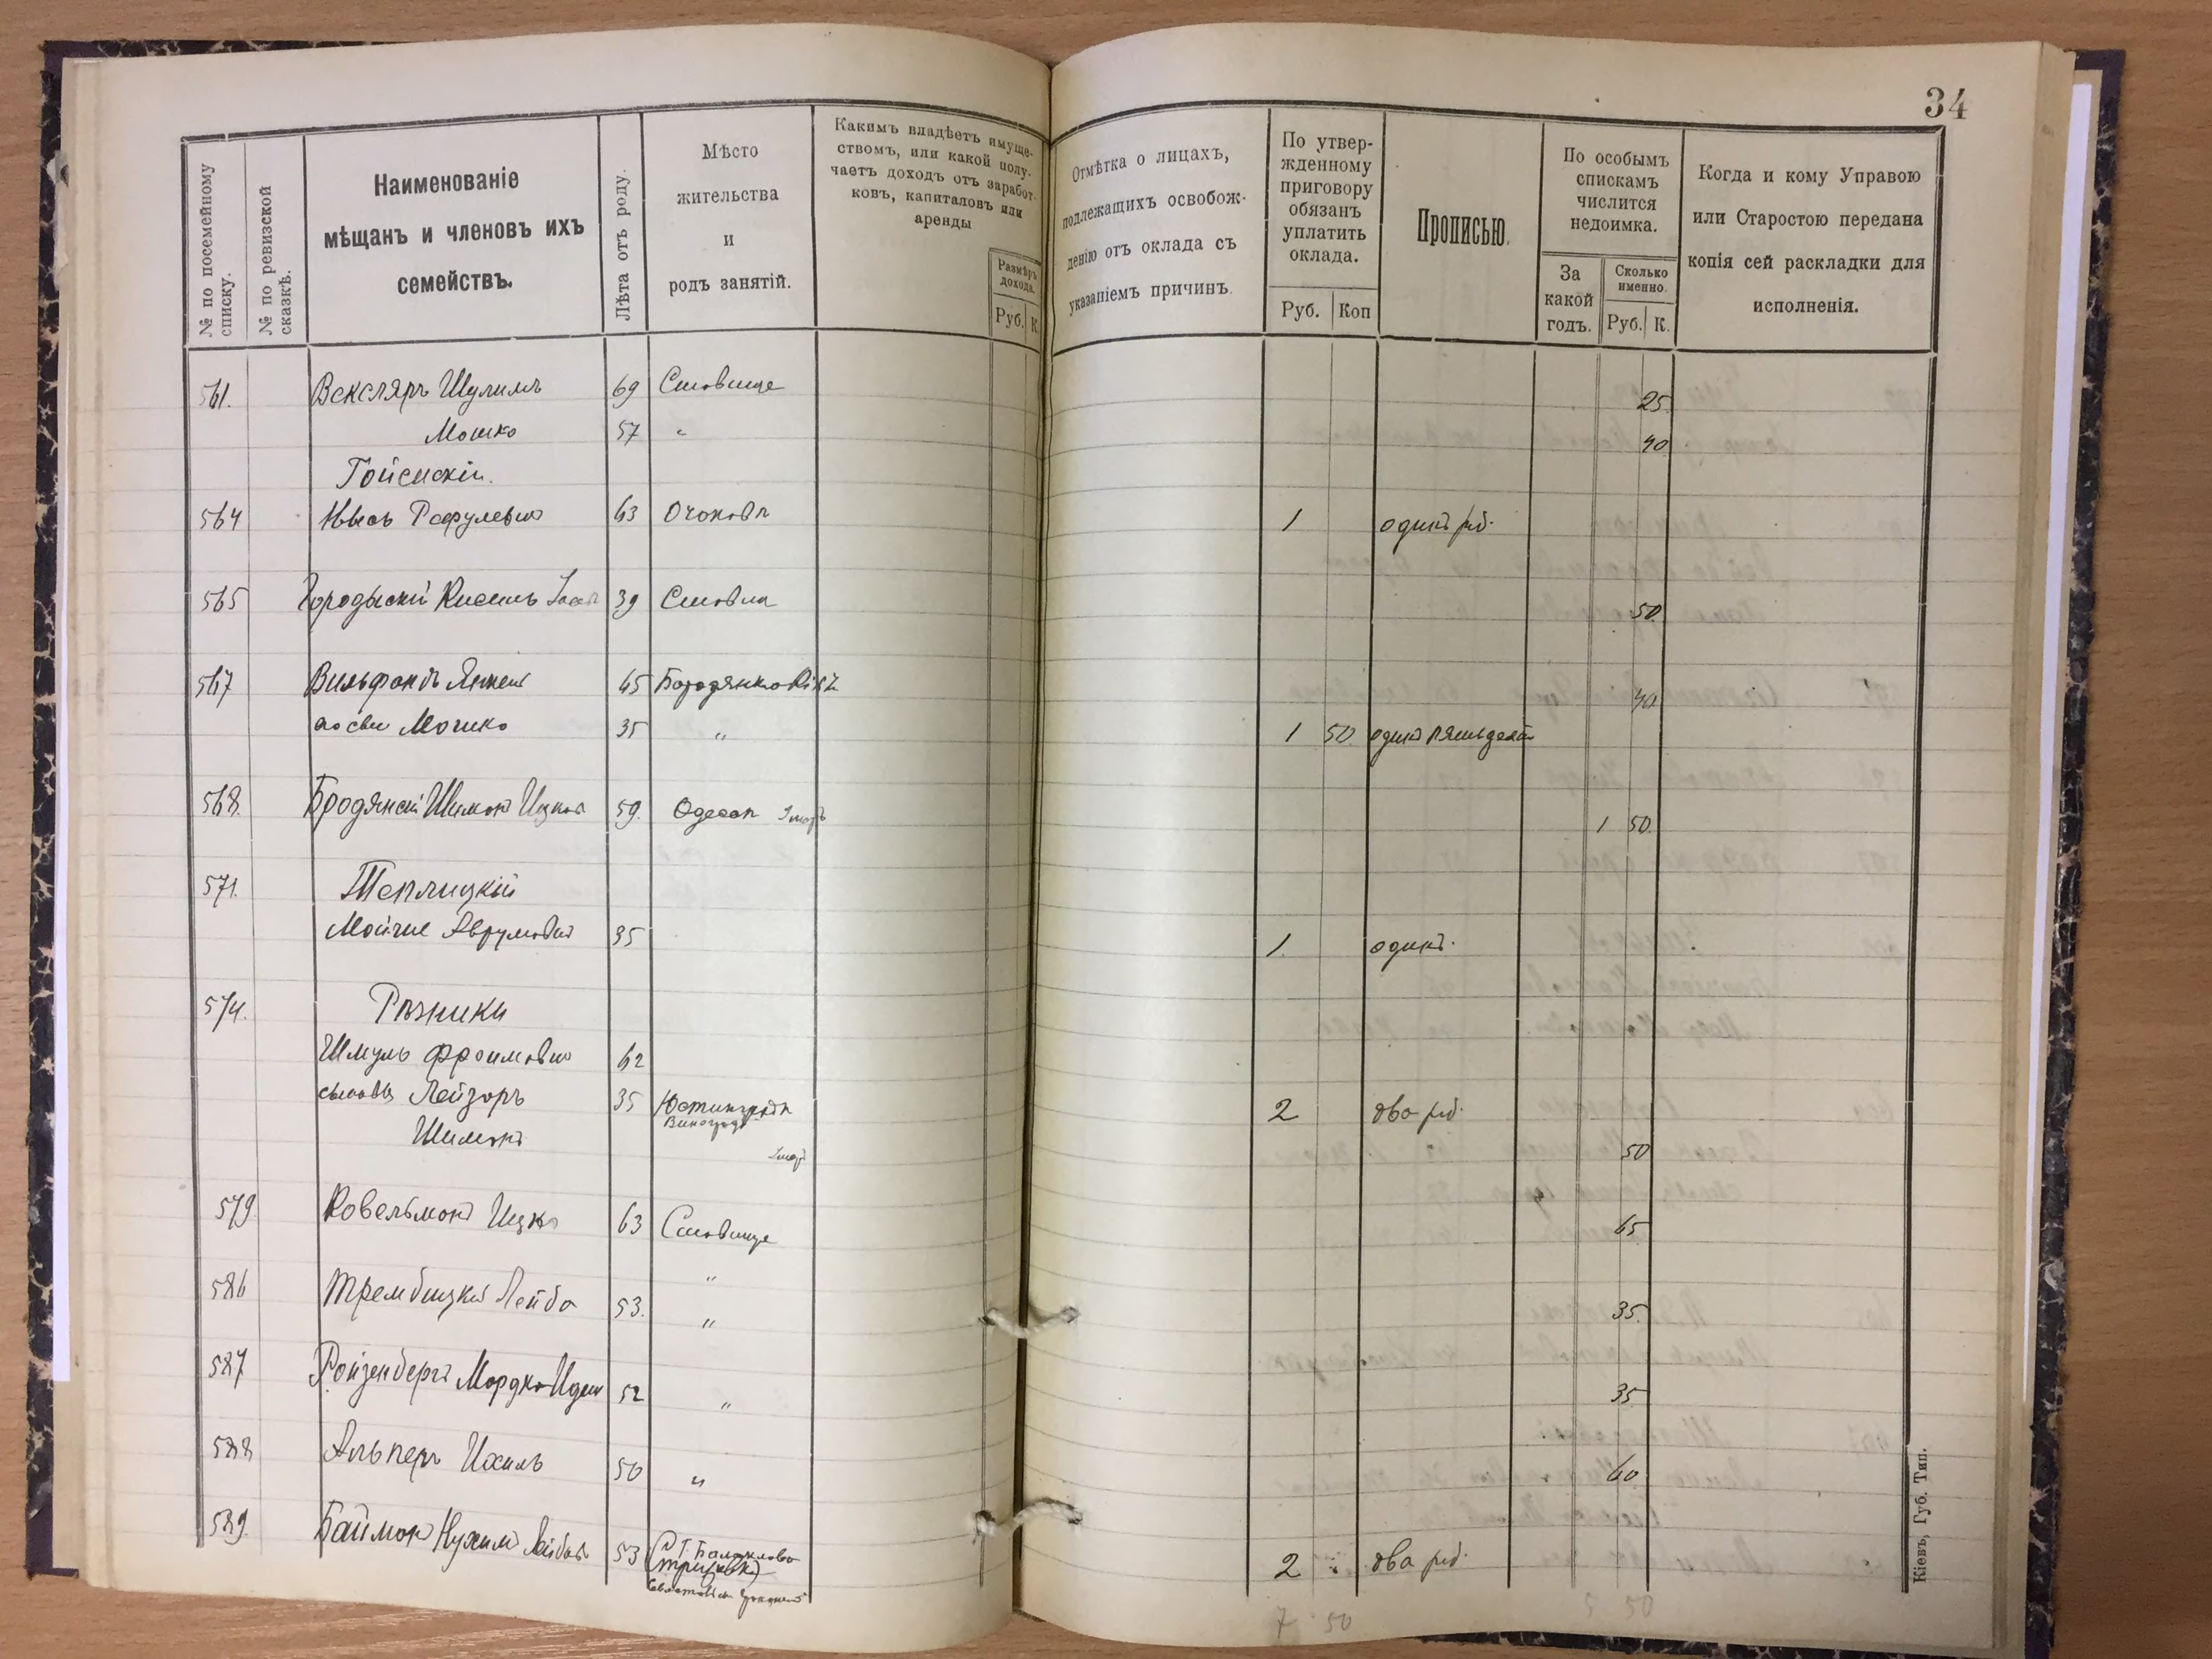 34
№ по посемейному списку.
№ по ревизской сказкѣ.
Наименованіе
мѣщанъ и членовъ ихъ
семействъ.
Лѣта отъ роду.
Мѣсто
жительства
и
родъ занятій.
Какимъ владѣетъ имуще-
ствомъ, или какой полу-
чаетъ доходъ отъ заработ-
ковъ, капиталовъ или
аренды
Размѣръ
дохода.
Руб. К.
Отмѣтка о лицахъ,
подлежащихъ освобож-
денію отъ оклада съ
указаніемъ причинъ.
По утвер-
жденному
приговору
обязанъ
уплатить
оклада.
Руб. Коп
Прописью.
По особымъ
спискамъ
числится
недоимка.
За
какой
годъ.
Сколько
именно.
Руб. К.
Когда и кому Управою
или Старостою передана
копія сей раскладки для
исполненія.
561. Векслярь Шулимъ 69 Ставище 25
Мошко 57 " 40
Гойсискій.
564 63 Очаковъ 1 одинъ руб.
565 Городыскій 39 50
567 Вильфандъ Янкель 45 Бородянка 40
Мошко 35 " 1 50 одинъ пятьдесят
568. Бродянскій Шимонъ Ицков 59. Одесса 1 50
571. Теплицкій
Мойше Аврумовичъ 35 1. одинъ.
574. Рѣзники
Шмуль Фроимовичъ 62
сыновья Лейзоръ 35 Юстинградъ 2 два руб.
Виноград
Шимонъ 50
579 Ковельманъ Ицко 63 Ставище 65
"
586 Трембицкій Лейба 53. " 35.
587 Ройзенбергъ Мордко 52 " 35
588 Альперъ Ихиль 50 " 60
589. Байманъ Нухимъ 53 2 два руб.
7 50 5 50
Кіевъ, Губ. Тип.